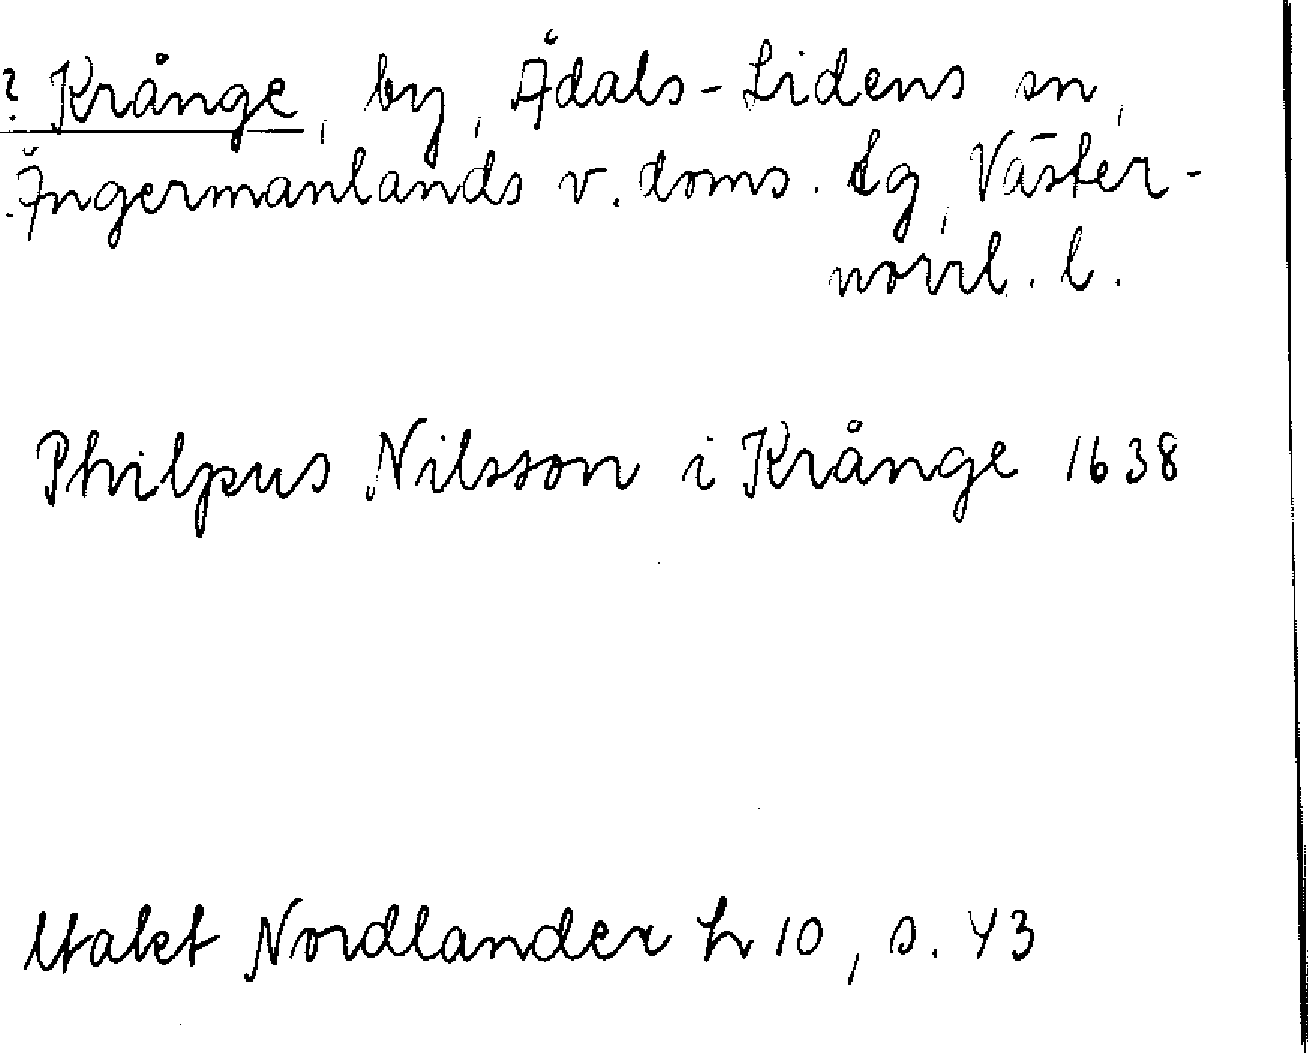 ? Krånge, by, Ådals-Lidens sn,
Ångermanlands v. doms. tg, Väster-
norrl. l.
Philpus Nilsson i Krånge 1638
Utakt Nordlander h 10, s. 43